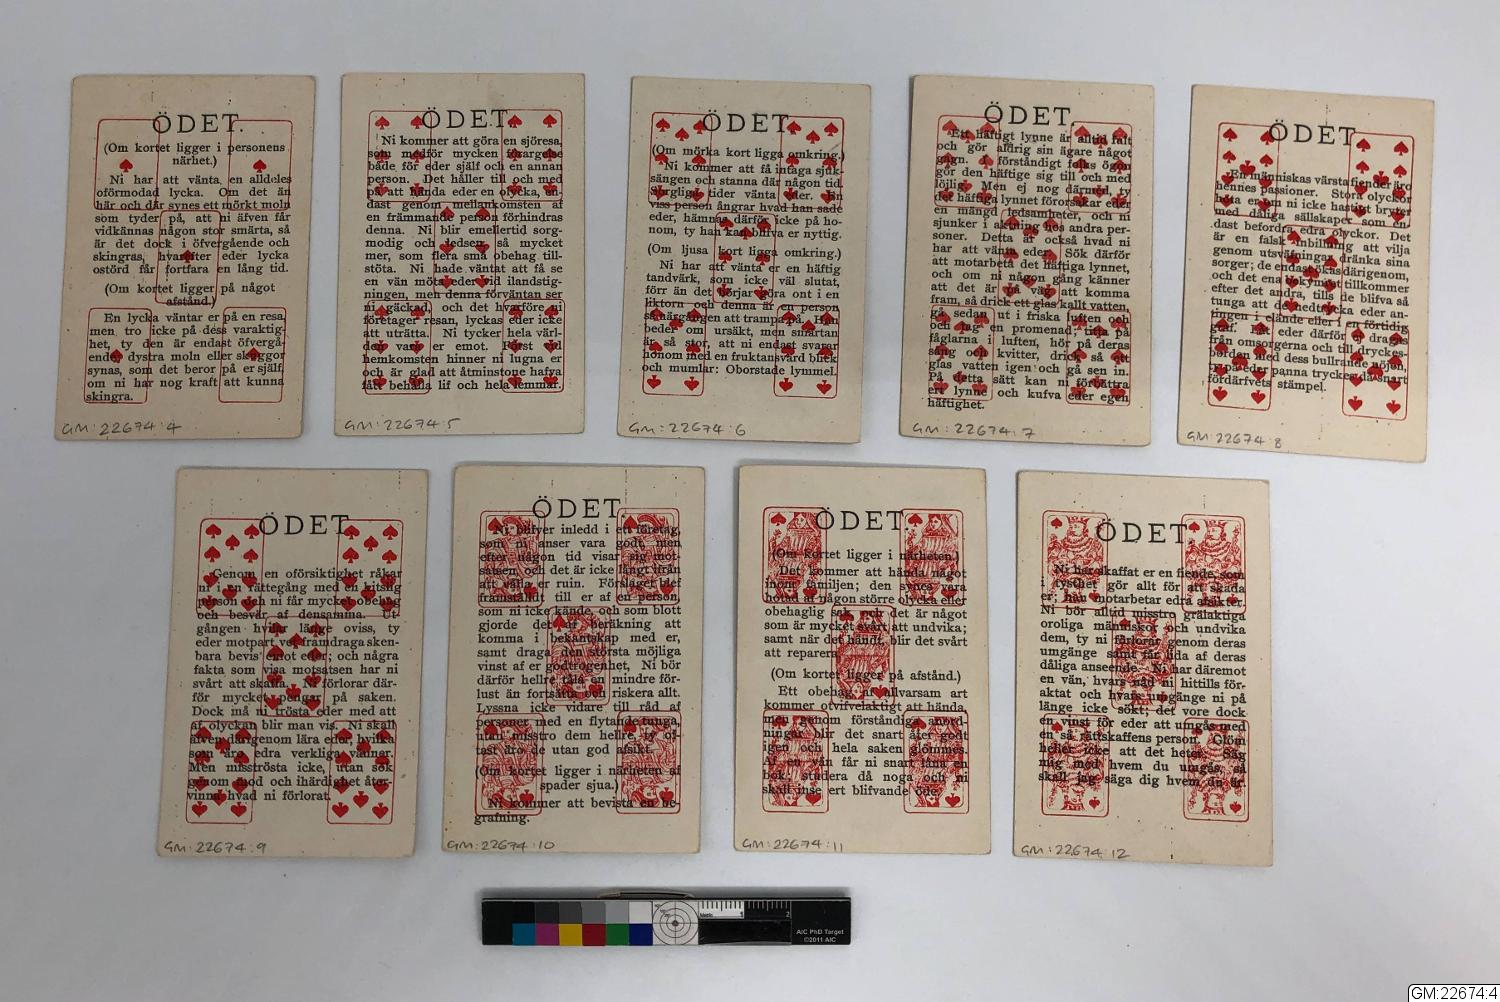 ÖDET.
(Om kortet ligger i personens
närhet.)
Ni har att vänta en alldeles
oförmodad lycka. Om det än
här och där synes ett mörkt moln
som tyder på, att ni äfven får
vidkännas någon stor smärta, så
är det dock i öfvergående och
skingras, hvarefter eder lycka
ostörd får fortfara en lång tid.
(Om kortet ligger på något
afstånd.)
En lycka väntar er på en resa,
men, tro icke på dess varaktig-
het, ty den är endast öfvergå-
ende; dystra moln eller skuggor
synas, som det beror på er själf,
om ni har nog kraft att kunna
skingra.
GM:22674:4
ÖDET.
Ni kommer att göra en sjöresa,
som medför mycken förargelse
både för eder själf och en annan
person. Det håller till och med
på att hända eder en olycka, en-
dast genom mellankomsten af
en främmande person förhindras
denna. Ni blir emellertid sorg-
modig och ledsen, så mycket
mer, som flera små obehag till-
stöta. Ni hade väntat att få se
en vän möta eder vid ilandstig-
ningen, men denna förväntan ser
ni gäckad, och det hvarföre ni
företager resan, lyckas eder icke
att uträtta. Ni tycker hela värl-
den vara er emot. Först vid
hemkomsten hinner ni lugna er
och är glad att åtminstone hafva
fått behålla lif och hela lemmar.
GM:22674:5
ÖDET.
(Om mörka kort ligga omkring.)
Ni kommer att få intaga sjuk-
sängen och stanna där någon tid.
Sorgliga tider vänta eder. En
viss person ångrar hvad han sade
eder, hämnas därför icke på ho-
nom, ty han kan blifva er nyttig.
(Om ljusa kort ligga omkring.)
Ni har att vänta er en häftig
tandvärk, som icke väl slutat,
förr än det börjar göra ont i en
liktorn och denna är en person
så närgången att trampa på. Han
beder om ursäkt, men smärtan
är så stor, att ni endast svarar
honom med en fruktansvärd blick
och mumlar: Oborstade lymmel.
GM:22674:6
ÖDET.
Ett häftigt lynne är alltid fält
och gör aldrig sin ägare något
gagn. I förståndigt folks ögon
gör den häftige sig till och med
löjlig. Men ej nog därmed, ty
det häftiga lynnet förorsakar eder
en mängd ledsamheter, och ni
sjunker i aktning hos andra per-
soner. Detta är också hvad ni
har att vänta eder. Sök därför
att motarbeta det häftiga lynnet,
och om ni någon gång känner
att det är på väg att komma
fram, så drick ett glas kallt vatten,
gå sedan ut i friska luften och
och tag en promenad; titta på
fåglarna i luften, hör på deras
sång och kvitter, drick så ett
glas vatten igen och gå sen in.
På detta sätt kan ni förbättra
ert lynne och kufva eder egen
häftighet.
GM:22674:7
ÖDET.
En människas värsta fiender äro
hennes passioner. Stora olyckor
hota er om ni icke hastigt bryter
med dåliga sällskaper som en-
dast befordra edra olyckor. Det
är en falsk inbillning att vilja
genom utsväfningar dränka sina
sorger; de endast ökas därigenom,
och det ena bekymret tillkommer
efter det andra, tills de blifva så
tunga att de nedtrycka eder an-
tingen i elände eller i en förtidig
graf. Låt eder därför ej dragas
från omsorgerna och till dryckes-
borden med dess bullrande nöjen,
ty på eder panna tryckes då snart
fördärfvets stämpel.
GM:22674:8
ÖDET.
Genom en oförsiktighet råkar
ni i en rättegång med en listig
person och ni får mycket obehag
och besvär af densamma. Ut-
gången hvilar länge oviss, ty
eder motpart vet framdraga sken-
bara bevis emot eder; och några
fakta som visa motsatsen har ni
svårt att skaffa. Ni förlorar där-
för mycket pengar på saken.
Dock må ni trösta eder med att
af olyckan blir man vis. Ni skall
äfven därigenom lära eder, hvilka
som äro edra verkliga vänner.
Men misströsta icke, utan sök
genom mod och ihärdighet åter-
vinna hvad ni förlorat.
GM:22674:9
ÖDET.
Ni blifver inledd i ett företag,
som ni anser vara godt, men
efter någon tid visar sig mot-
satsen, och det är icke långt ifrån
att vålla er ruin. Förslaget blef
framställdt till er af en person,
som ni icke kände, och som blott
gjorde det af beräkning att
komma i bekantskap med er,
samt draga den största möjliga
vinst af er godtrogenhet, Ni bör
därför hellre tåla en mindre för-
lust än fortsätta och riskera allt.
Lyssna icke vidare till råd af
personer med en flytande tunga,
utan misstro dem hellre, ty of-
tast äro de utan god afsikt.
(Om kortet ligger i närheten af
spader sjua.)
Ni kommer att bevista en be-
grafning.
GM:22674:10
ÖDET.
(Om kortet ligger i närheten.)
Det kommer att hända något
inom familjen; den synes vara
hotad af någon större olycka eller
obehaglig sak och det är något
som är mycket svårt att undvika;
samt när det händt, blir det svårt
att reparera.
(Om kortet ligger på afstånd.)
Ett obehag af allvarsam art
kommer otvifvelaktigt att hända,
men genom förståndiga anord-
ningar blir det snart åter godt
igen och hela saken glömmes.
Af en vän får ni snart låna en
bok; studera då noga och ni
skall inse ert blifvande öde.
GM:22674:11
ÖDET.
Ni har skaffat er en fiende, som
i tysthet gör allt för att skada
er; han motarbetar edra afsikter.
Ni bör alltid misstro grälaktiga
oroliga människor och undvika
dem, ty ni förlorar genom deras
umgänge samt får lida af deras
dåliga anseende. Ni har däremot
en vän, hvars nåd ni hittills för-
aktat och hvars umgänge ni på
länge icke sökt; det vore dock
en vinst för eder att umgås med
en så rättskaffens person. Glöm
heller icke att det heter: Säg
mig med hvem du umgås, så
skall jag säga dig hvem du är.
GM:22674:12
AIC PhD Target
©2011 AIC
GM:22674:4